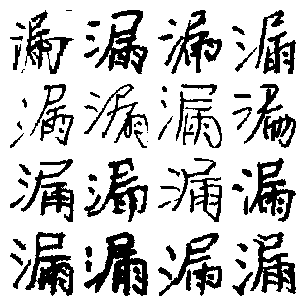 漏漏漏漏
漏漏漏漏
漏漏漏漏
漏漏漏漏